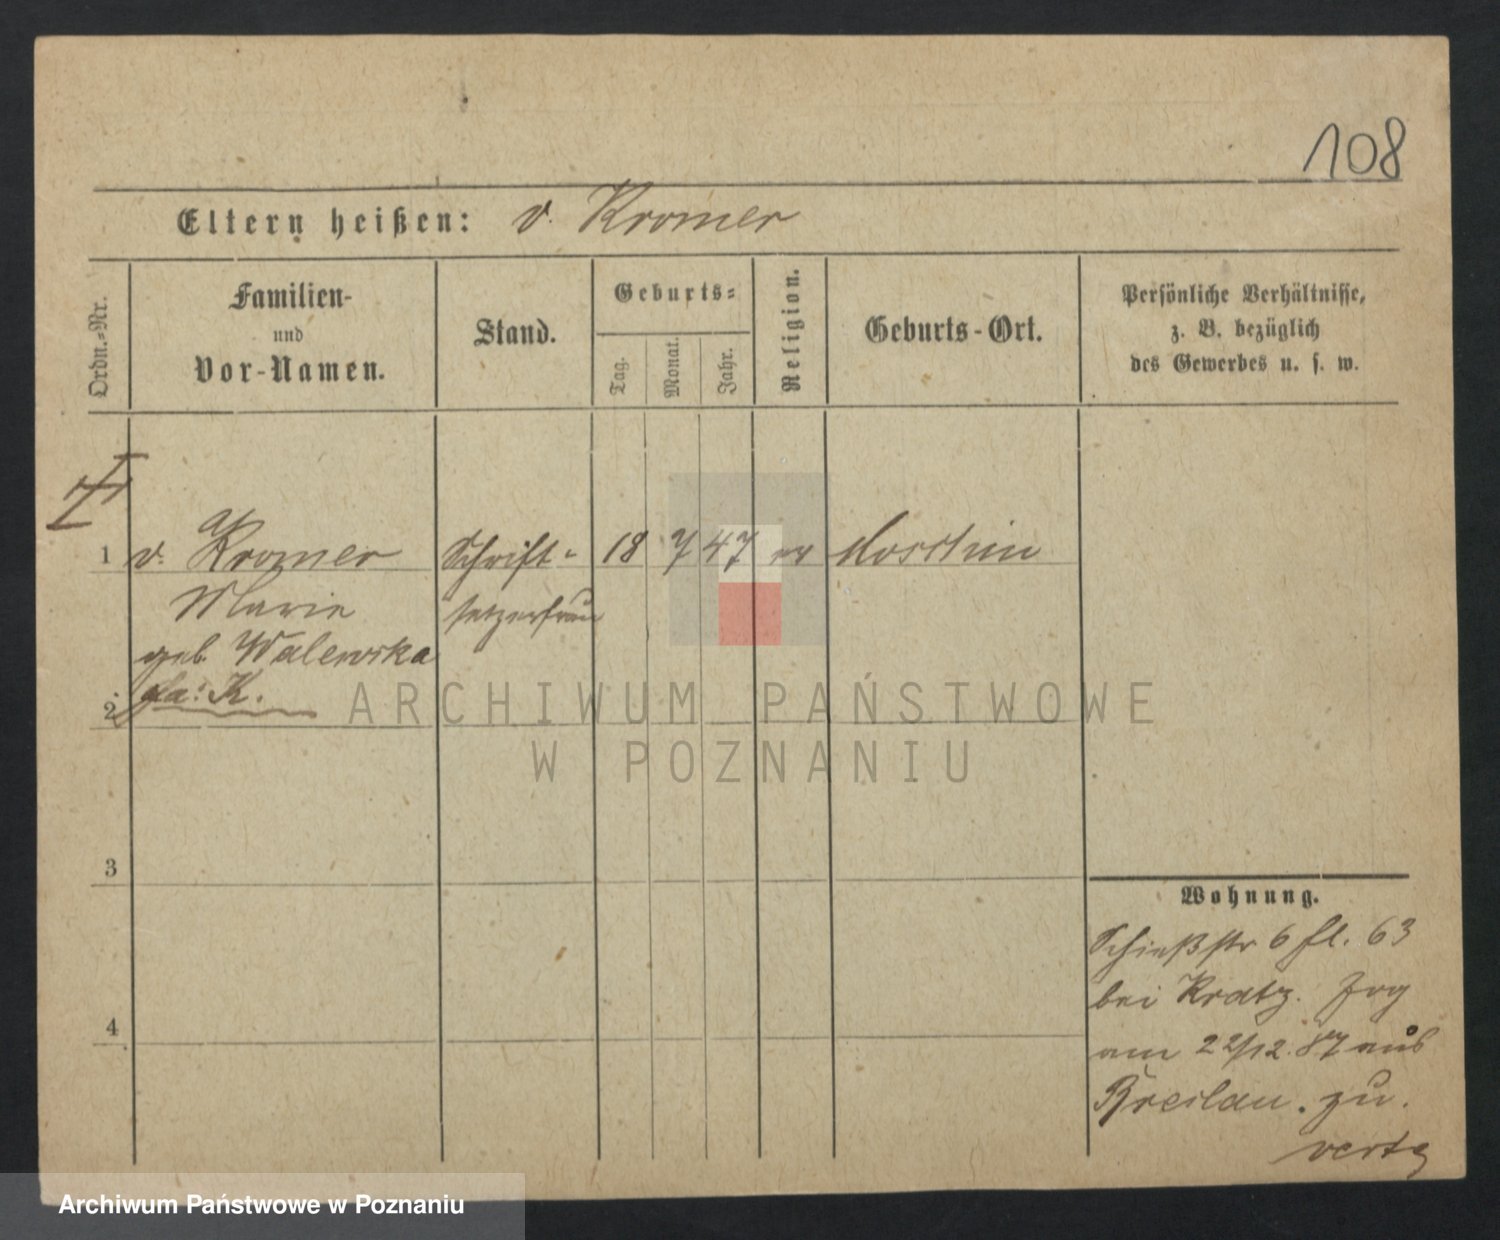 108
Eltern heißen: v. Kromer
Ordn.-Nr.
Familien-
und
Vor-Namen.
Stand.
Geburts-
Tag.
Monat.
Jahr.
Religion.
Geburts-Ort.
Persönliche Verhältnisse,
z. B. bezüglich
des Gewerbes u. s. w.
1 v. Kromer Schrift- 18 7 47 ev Moschin
Marie setzerfrau
geb. Walewska
2 K.
ARCHIWUM PAŃSTWOWE
W POZNANIU
3
4
Wohnung.
Schießstr 6 fl. 63
bei Kratz. Zug
am 22/12. 87 aus
Breslau. zu.
Archiwum Państwowe w Poznaniu